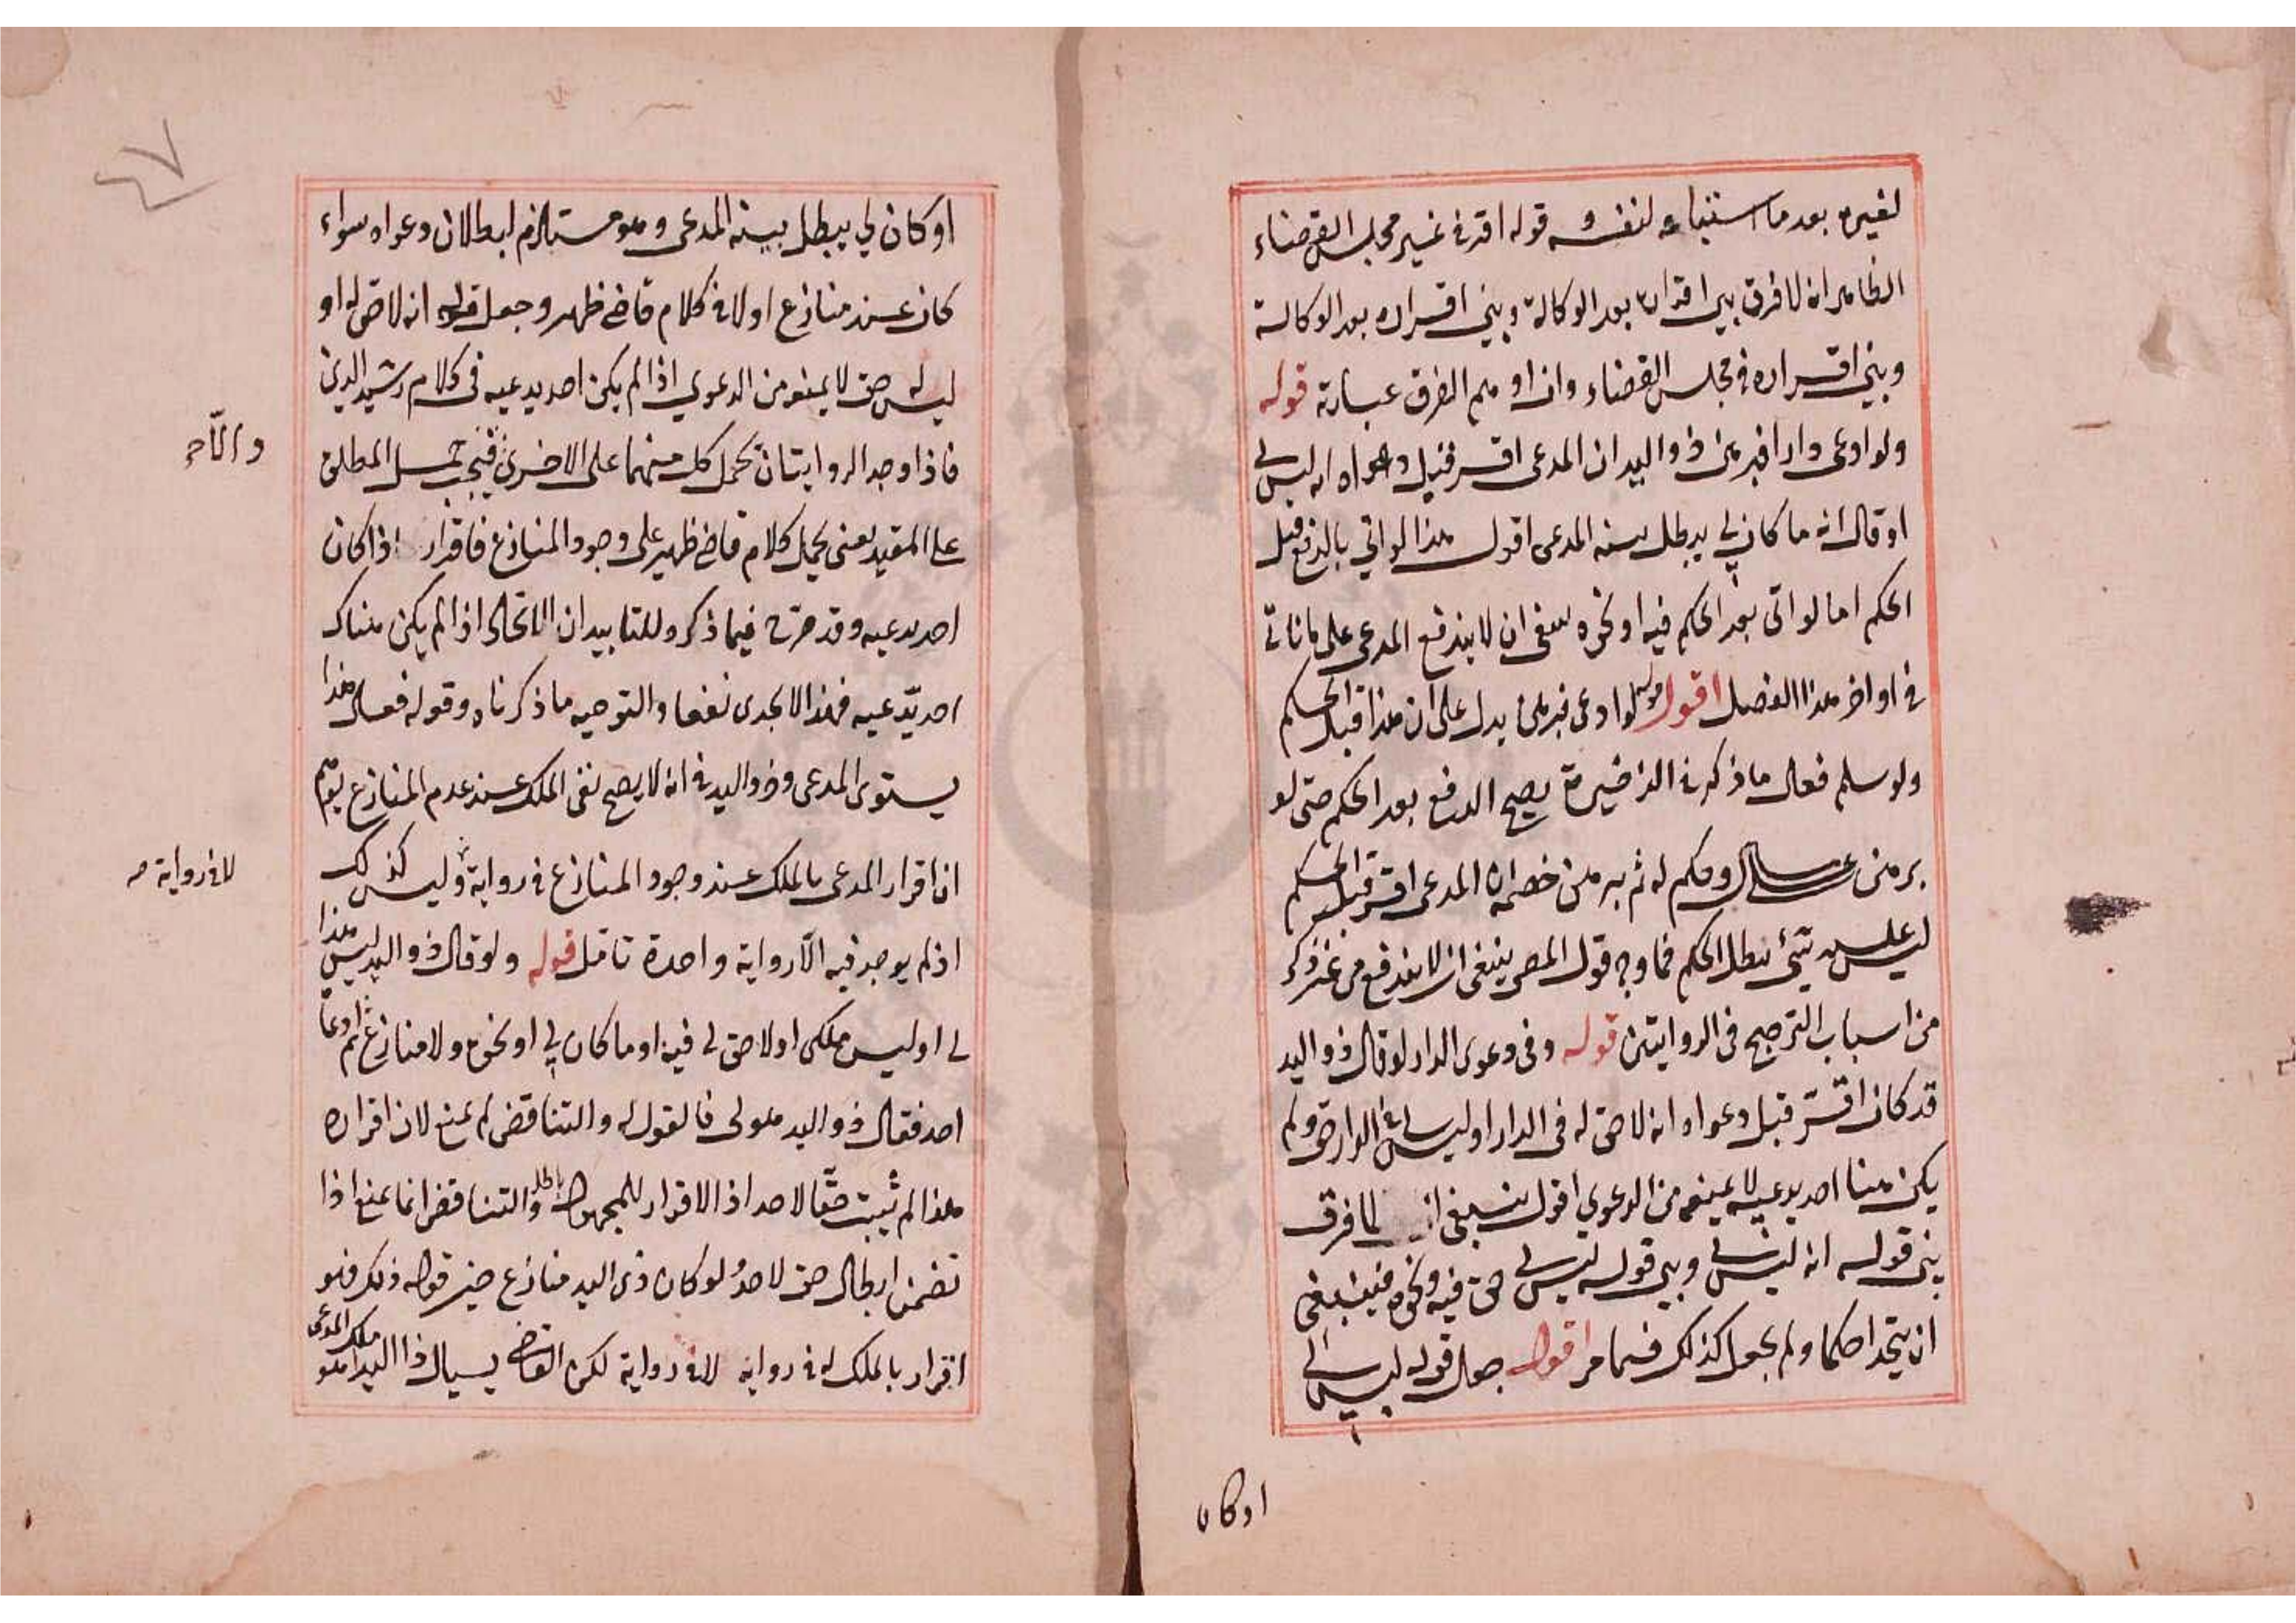 لغيره بعد ما استباعه لنفسه قوله اقر في غير مجلس القضاء
الظاهر انه لا فرق بين اقراره بعد الوكالة وبين اقراره بعد الوكالة
وبين اقراره في مجلس القضاء وان اوهم الفرق عبارته قوله
ولو ادعى دارا فبرهن ذو اليد ان المدعى اقر قبل دعواه انه ليس لي
او قال انه ما كان لي يبطل بينه المدعى اقول هذا لو اتى بالدفع قبل
الحكم اما لو اتى بعد الحكم فيه او نحوه ينبغى ان لا يندفع المدعى على ما ياتى
في اواخر هذا الفصل اقول قوله لو ادعى فبرهن يدل على ان هذا قبل الحكم
ولو سلم فعلى ما ذكر في الذخيرة يصح الدفع بعد الحكم حتى لو
برهن على مال وحكم له ثم برهن خصمه ان المدعى اقر قبل الحكم
ليس عليه شئ يبطل الحكم فما وجه قول المص ينبغى ان لا يندفع من غير ذكر
من اسباب الترجيح فى الروايتين قوله وفى دعوى الدار لو قال ذو اليد
قد كان اقر قبل دعواه انه لا حق له فى الدار او ليس له في الدار حق ولم
يكن هنا احد يدعيه لا يمنعه من الدعوي اقول ينبغى ان لا فرق
بين قوله انه ليس لي وبين قوله ليس لي حق فيه ونحوه فينبغى
ان يتحدا حكما ولم يجعل كذلك فيما مر اقول جعل قوله ليس لي
او كان
او كان لي يبطل بينه المدعى وهو مستلزم لبطلان دعواه سواء
كان عند منازع او لا في كلام قاضى ظهير وجعل قوله انه لا حق له او
ليس له حق لا يمنعه من الدعوي اذا لم يكن احد يدعيه فى كلام رشيد الدين
فاذا وجد الروايتان تحمل كل منهما على الاخرى فيجب حمل المطلق
على المقيد يعنى يحمل كلام قاضى ظهير على وجود المنازع فاقرار اذا كان
احد يدعيه وقد صرح فيما ذكروه للتاييد ان الاتحاد اذا لم يكن هناك
احد يدّعيه فهذا لا يجدى نفعا والتوجيه ما ذكرناه وقوله فعلى هذا
يستوى المدعى وذو اليد في انه لا يصح نفى الملك عند عدم المنازع يوهم
ان اقرار المدعى بالملك عند وجود المنازع في رواية وليس كذلك
لا في رواية صح
اذ لم يوجد فيه الّا رواية واحدة تامل قوله ولو قال ذو اليد ليس هذا
لي او ليس ملكى او لا حق لي فيه او ما كان لي او نحوه ولا منازع ثم ادعا
احد فقال ذو اليد هو لى فالقول له والتناقض لم يمنع لان اقراره
هذا لم يثبت حقّا لاحد اذ الاقرار للمجهول باطل والتناقض انما يمنع اذا
تضمن ابطال حق لاحد ولو كان ذى اليد منازع حين قوله ذلك فهو
اقرار بالملك له في رواية لا في رواية لكن القاضي يسال ذا اليد اهو ملك المدعى